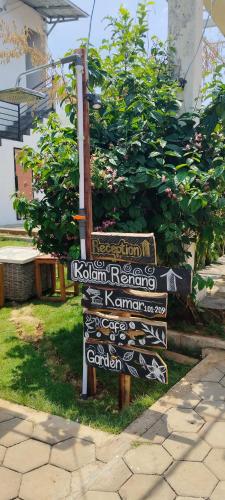 Reception
Kolam Renang
Kamar 101-209
Cafe
Garden